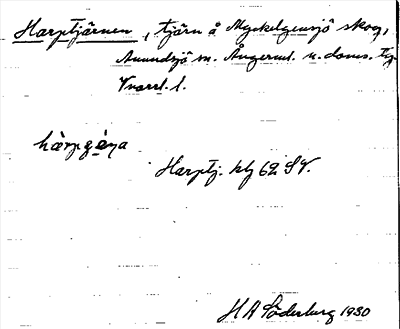 Harptjärnen, tjärn å Myckelgensjö skog,
Anundsjö sn. Ångerml. n. doms. tg.
Vnorrl. l.
hàrpǥæ̀ṇa
Harptj. kbl 62 SV.
H A Söderberg 1930